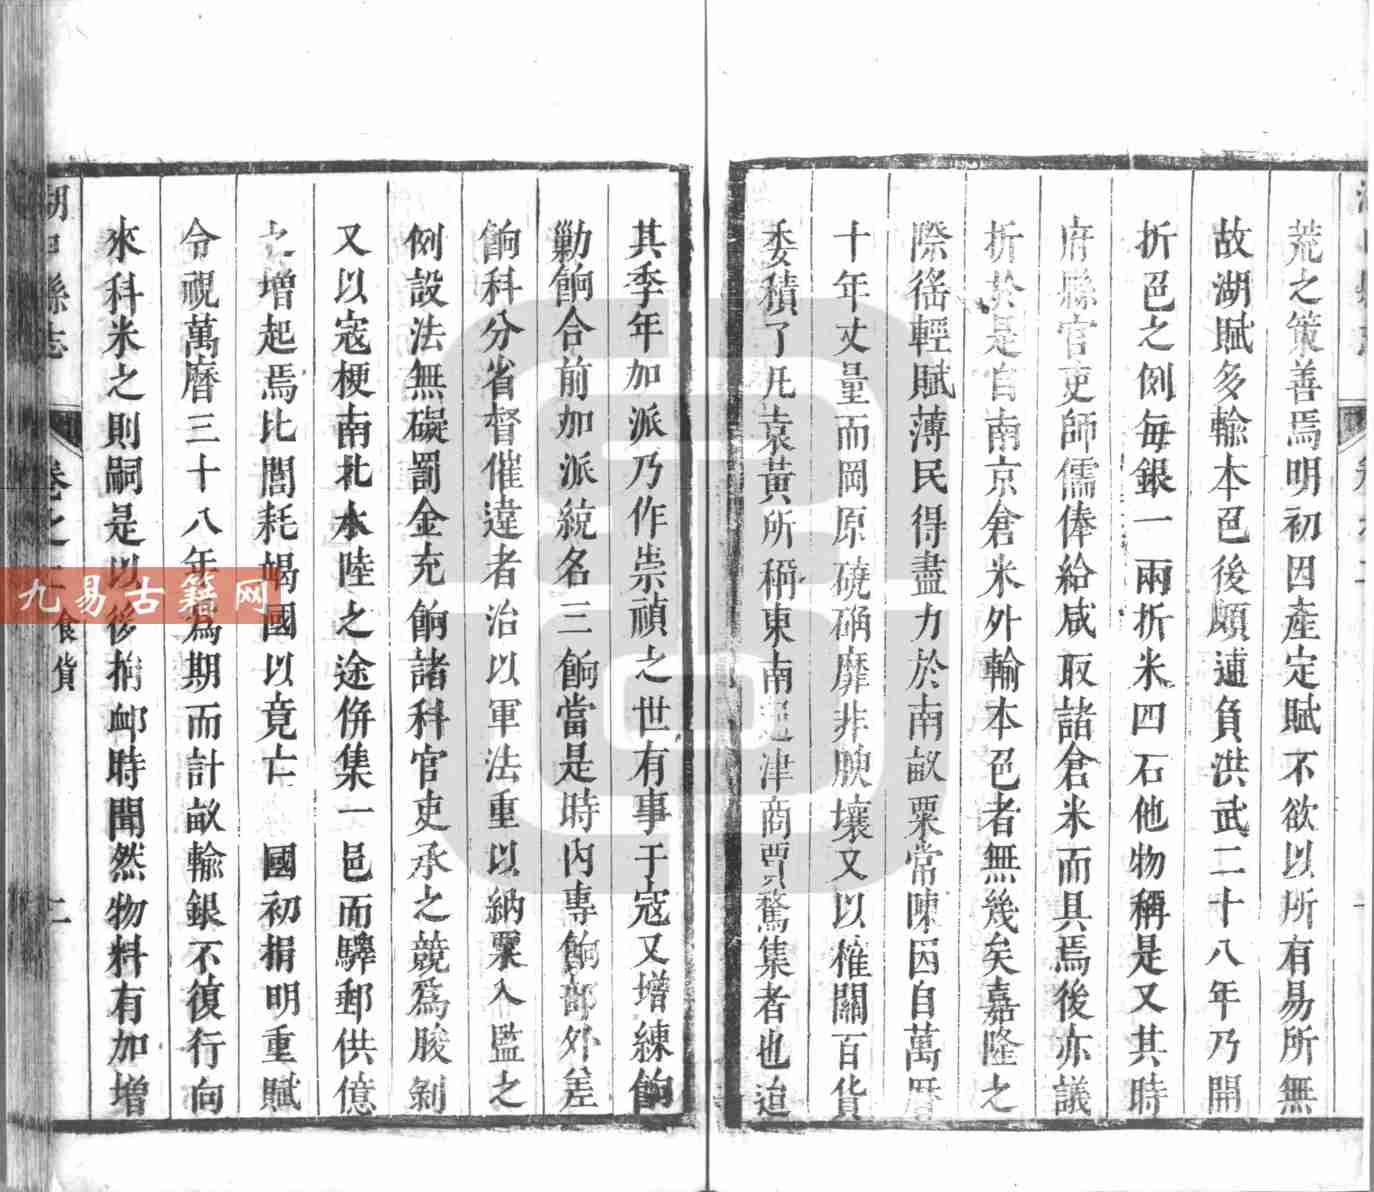 荒之策善焉明初因產定賦不欲以所有易所無
故湖賦多輸本色後頗逋負洪武二十八年乃開
折色之例每銀一兩折米四石他物稱是又其時
府縣官吏師儒俸給咸取諸倉米而具焉後亦議
折於是自南京倉米外輸本色者無幾矣嘉隆之
際徭輕賦薄民得盡力於南畝粟常陳因自萬曆
十年丈量而岡原磽确靡非腴壤又以榷關百貨
委積了凡袁黃所稱東南通津商賈鶩集者也迨
其季年加派乃作崇禎之世有事于寇又增練餉
勦餉合前加派統名三餉當是時內專餉部外差
餉科分省督催違者治以軍法重以納粟入監之
例設法無礙罰金充餉諸科官吏承之競為朘剝
又以寇梗南北水陸之途併集一邑而驛郵供億
之增起焉比閭耗竭國以竟亡 國初捐明重賦
令視萬曆三十八年為期而計畝輸銀不復行向
來科米之則嗣是以後捐卹時聞然物料有加增
湖口縣志 卷之二 食貨 二
九易古籍网